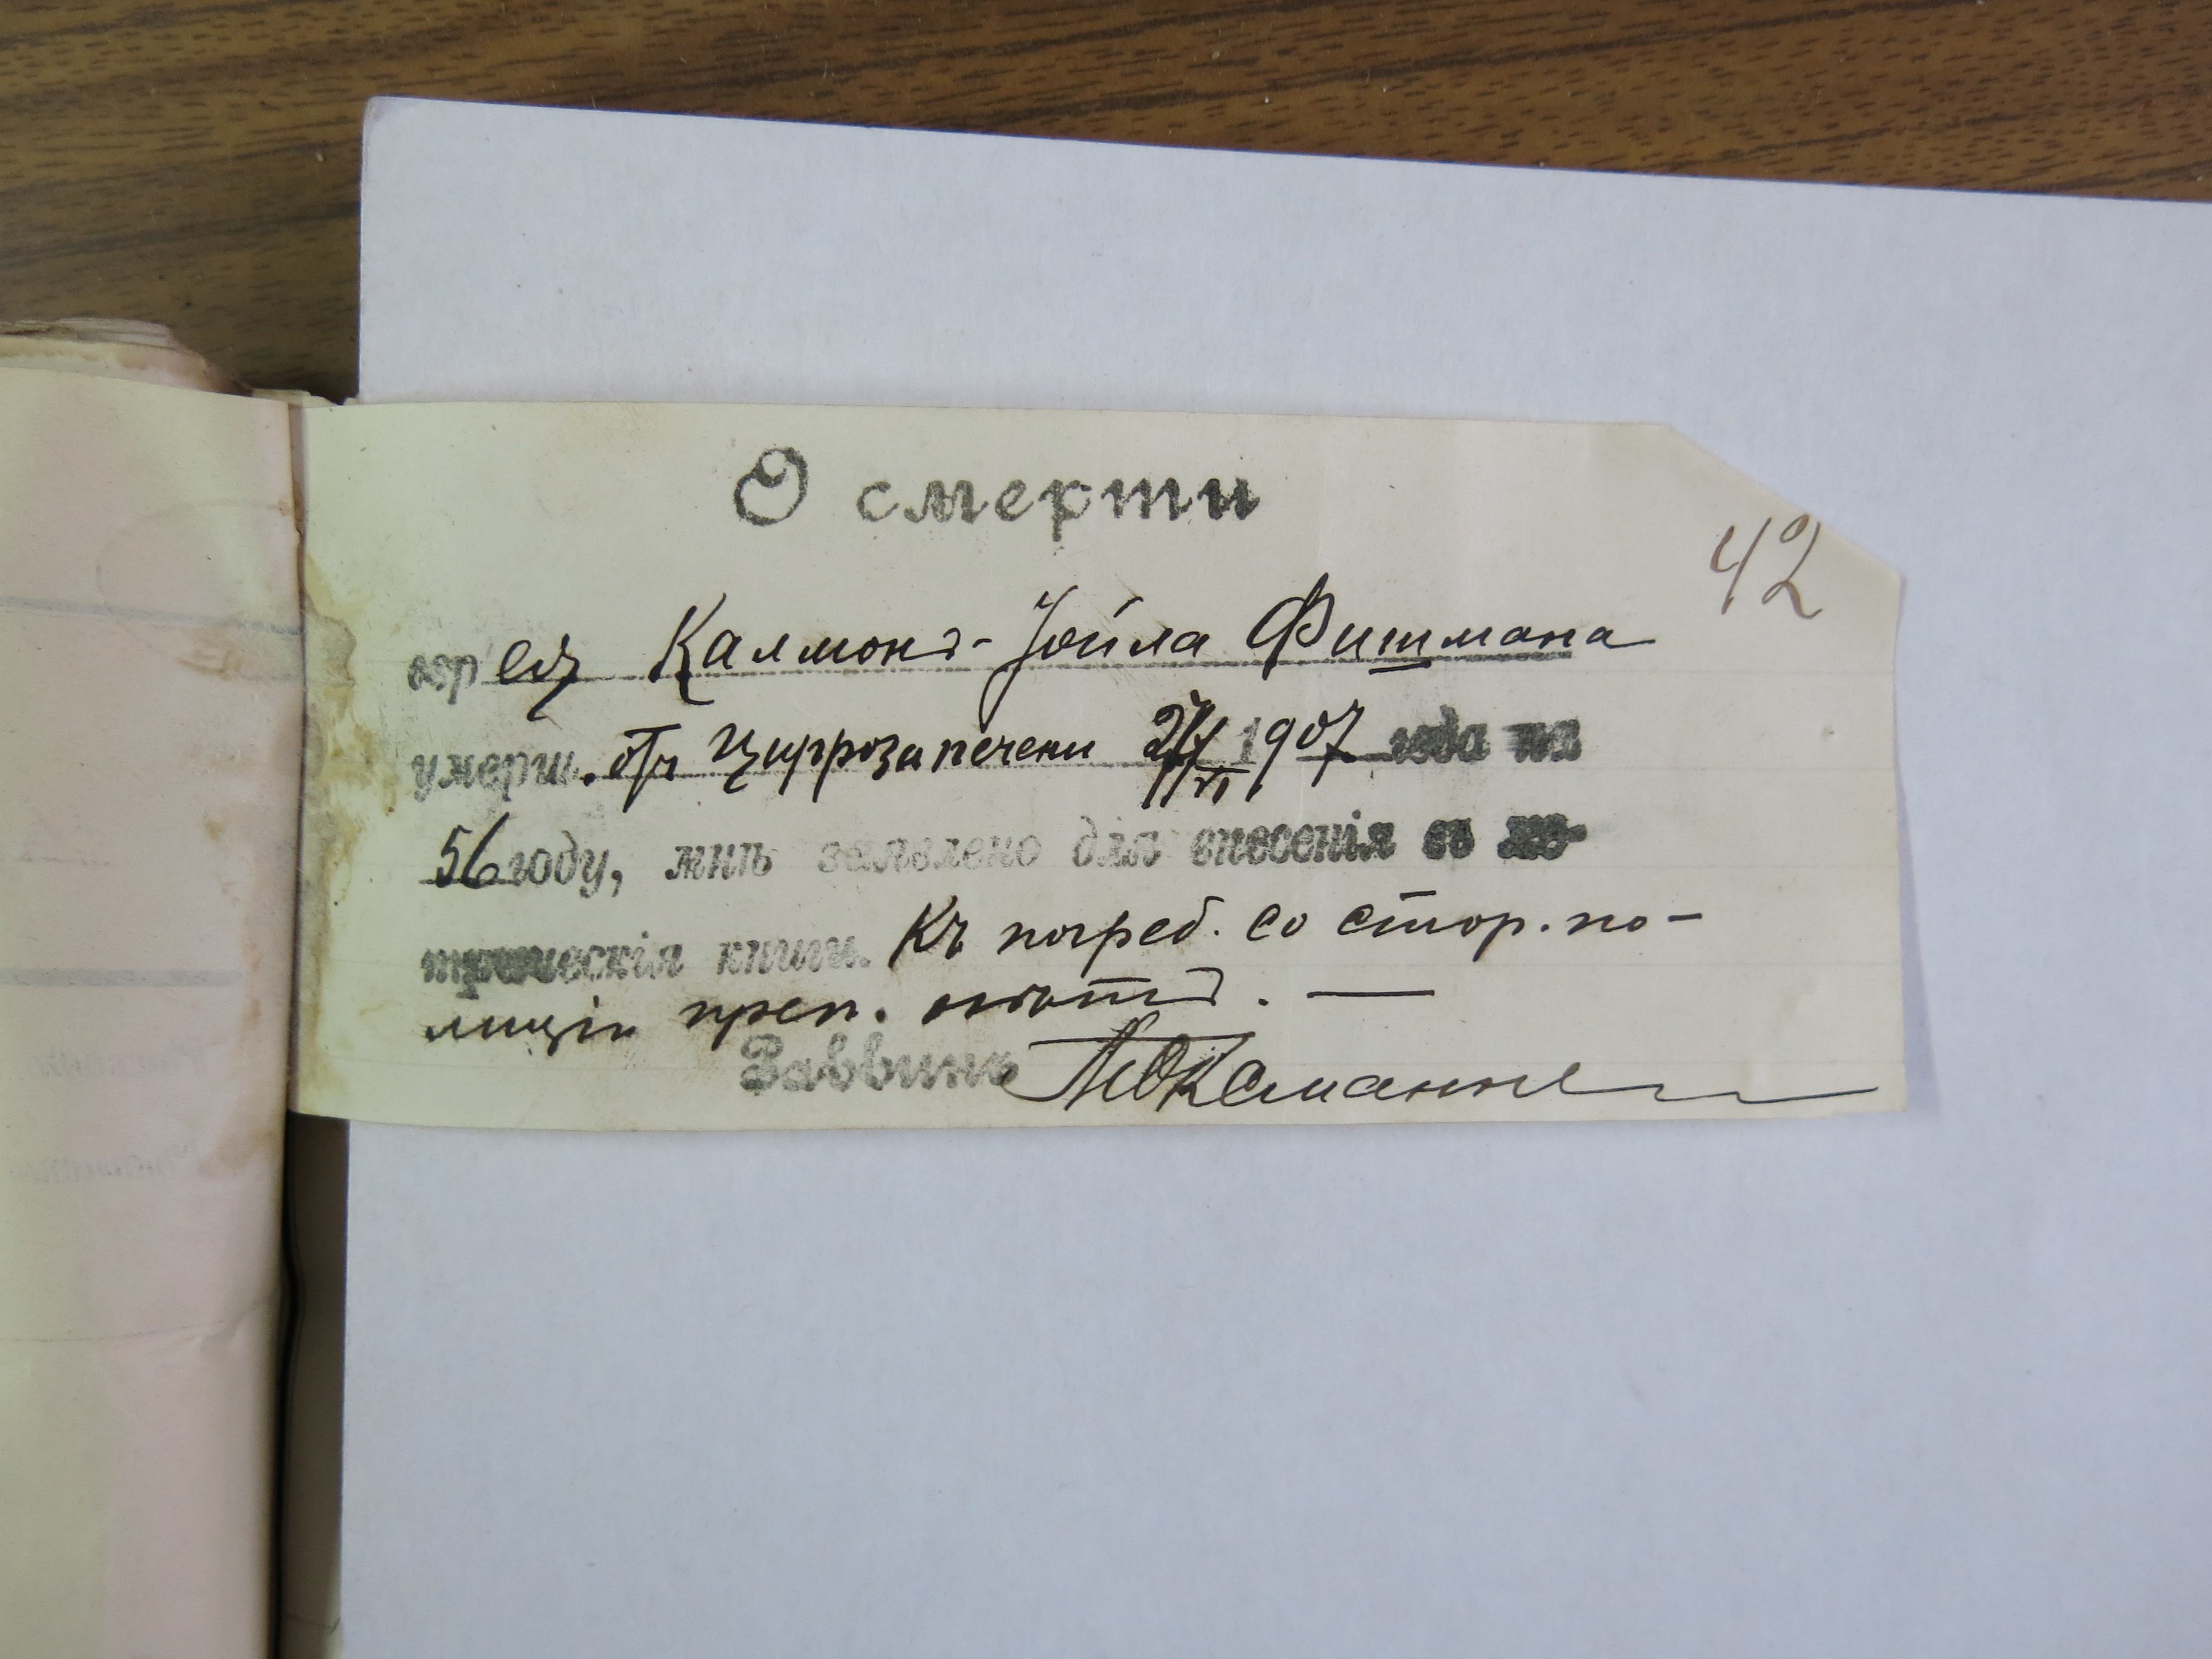 О смерти
42
евр ея Калмонъ-Іойла Фишмана
умерш. отъ Цирроза печени 27/VI 1907 года на
56 году, мнѣ заявлено для внесенія въ ме-
трическія книги. Къ погреб. со стор. по-
лиціи преп. нѣтъ. —
Раввинъ